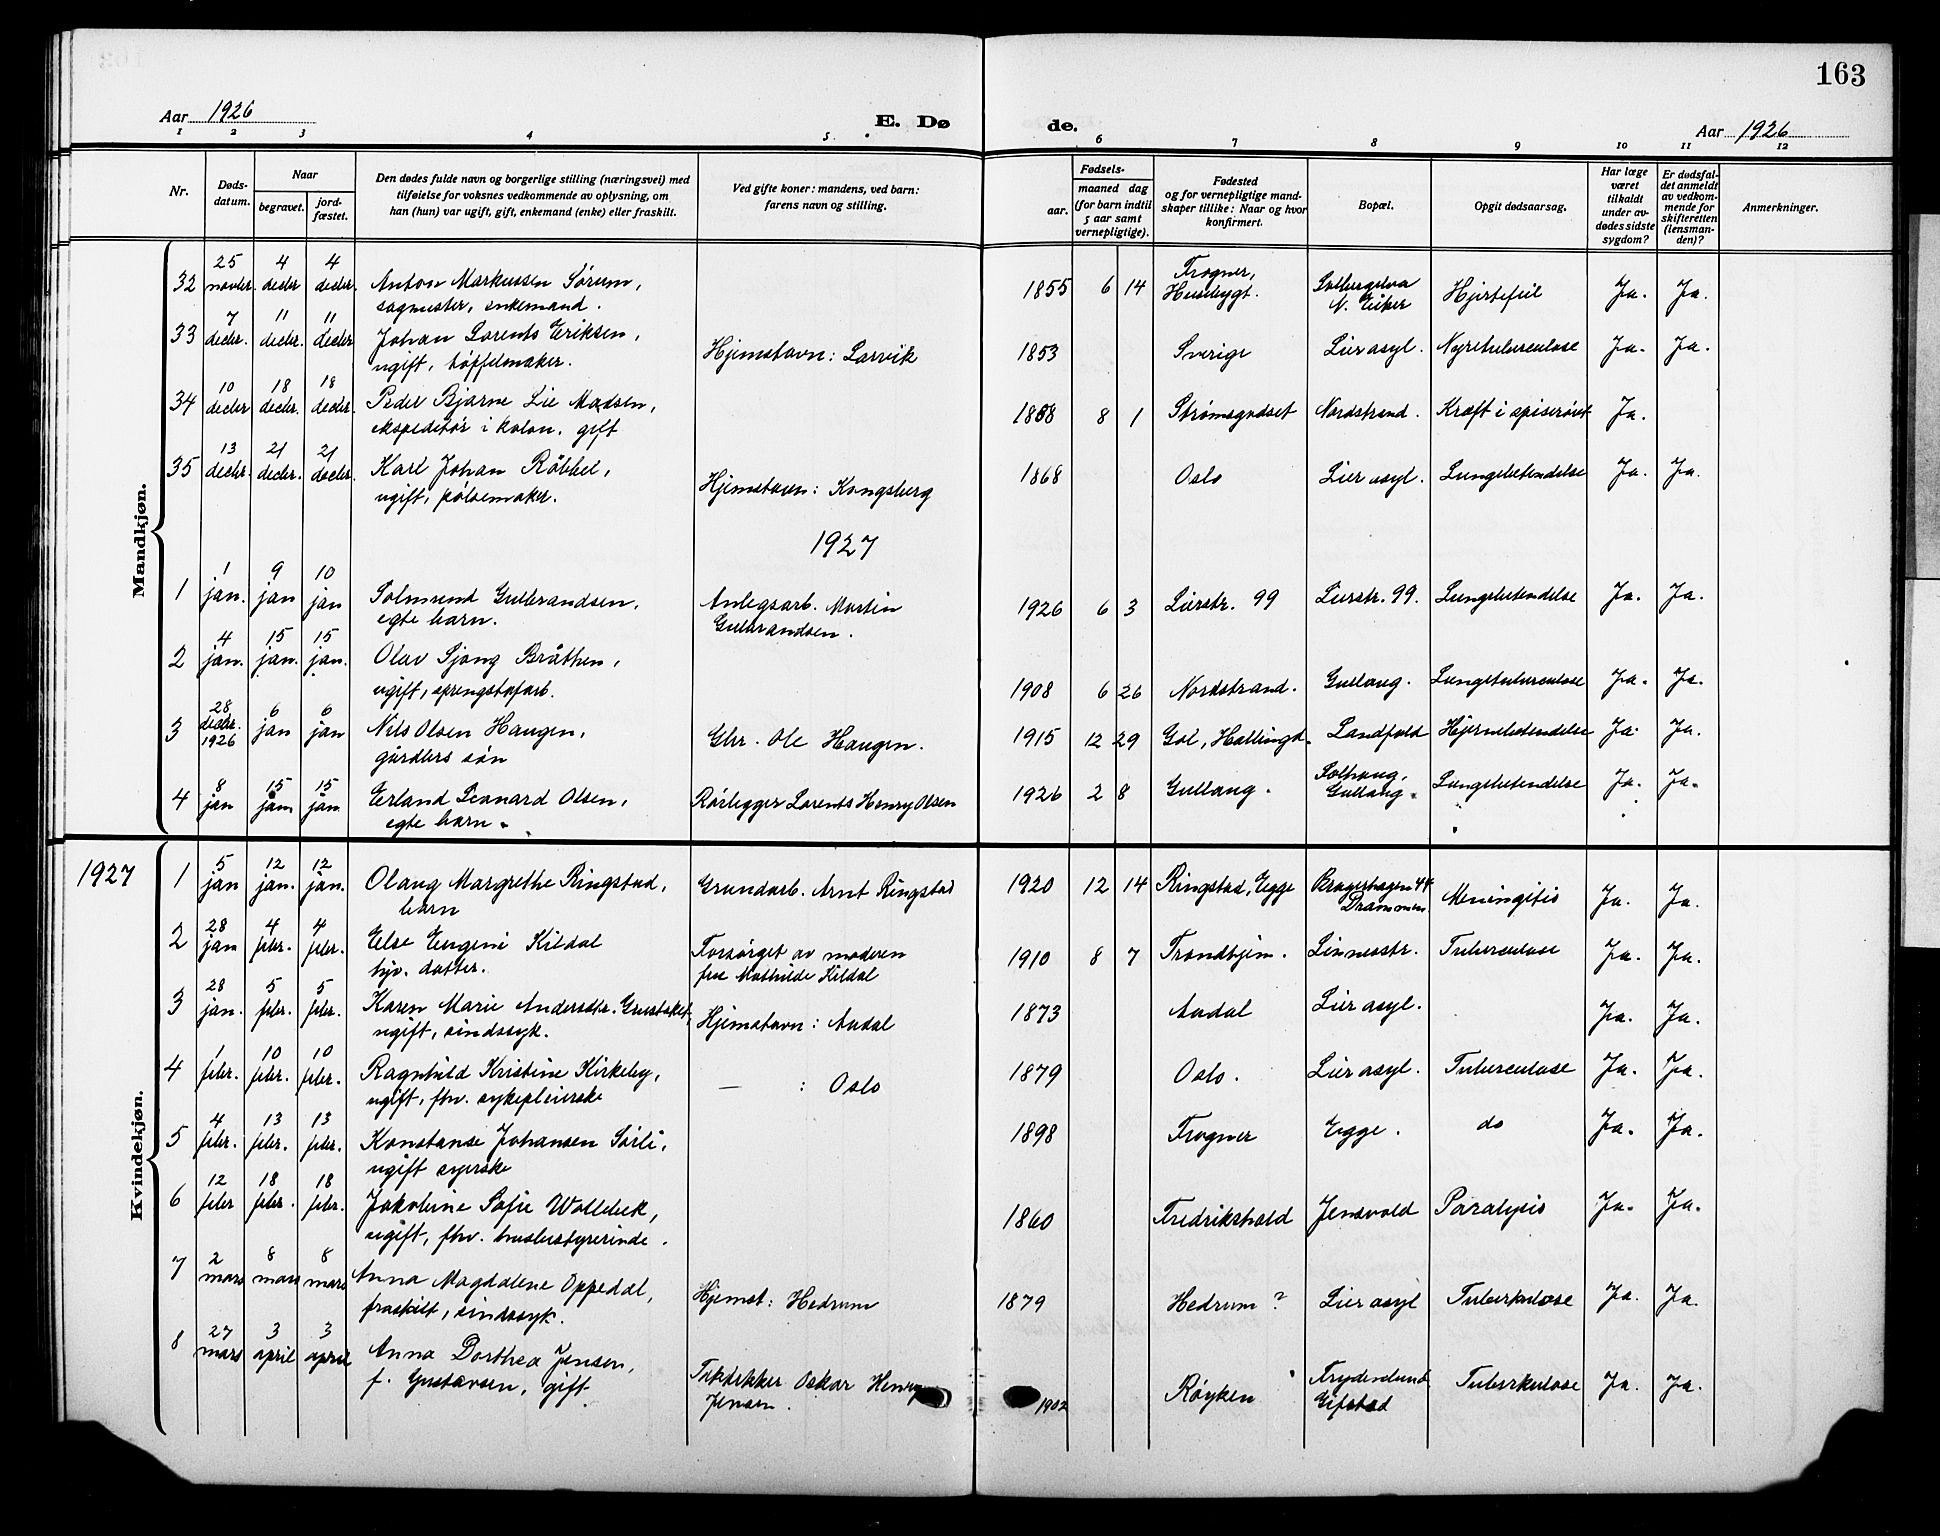 163
Aar 1926
E. Dø
de.
Aar 1926
1 2 3 4 5 6 7 8 9 10 11 12
Nr.
Døds-
datum.
Naar
begravet.
jord-
fæstet.
Den dødes fulde navn og borgerlige stilling (næringsvei) med
tilføielse for voksnes vedkommende av oplysning, om
han (hun) var ugift, gift, enkemand (enke) eller fraskilt.
Ved gifte koner: mandens, ved barn:
farens navn og stilling.
Fødsels-
aar.
maaned dag
(for barn indtil
5 aar samt
vernepligtige).
Fødested
og for vernepligtige mand-
skaper tillike: Naar og hvor
konfirmert.
Bopæl.
Opgit dødsaarsag.
Har læge
været
tilkaldt
under av-
dødes sidste
sygdom?
Er dødsfal-
det anmeldt
av vedkom-
mende for
skifteretten
(lensman-
den)?
Anmerkninger.
Mandkjøn.
32 25 novbr. 4 decbr 4 decbr. Anton Markussen Sørum,
sagmester, enkemand.
1855 6 14 Frogner, Husebygt. Solbergelva N. Eiker Hjertefeil Ja. Ja.
33 7 decbr. 11 decbr. 11 decbr Johan Lorents Eriksen,
ugift, tøffelmaker. Hjemstavn: Larvik
1853 Sverige Lier asyl. Nyretuberculose Ja. Ja.
34 10 decbr 18 decbr. 18 decbr. Peder Bjarne Lie Madsen,
ekspeditør i kolon. gift
1868 8 1 Strømsgodset Nordstrand. Kræft i spiserøret Ja.
35 13 decbr. 21 decbr. 21 decbr. Karl Johan Røbbel,
ugift, pølsemaker. Hjemstavn: Kongsberg
1868 Oslo Lier asyl. Lungebetendelse Ja. Ja.
1927
1 1 jan. 9 jan 10 jan Solmund Gulbrandsen,
egte barn. Anlegsarb. Martin
Gulbrandsen.
1926 6 3 Lierstr. 99 Lierstr. 99. Lungebetendelse Ja. Ja.
2 4 jan. 15 jan. 15 jan. Olav Sjong Bråthen,
ugift, sprengstofarb.
1908 6 26 Nordstrand. Gullaug. Lungetuberculose Ja. Ja.
3 28 decbr. 1926 6 jan 6 jan Nils Olsen Haugen,
gårdbrs søn Gbr. Ole Haugen.
1915 12 29 Gol, Hallingd. Landfald Hjernebetendelse Ja. Ja.
4 8 jan 15 jan. 15 jan Erland Leonard Olsen,
egte barn. Rørlegger Lorents Henry Olsen
1926 2 8 Gullaug. Solhaug, Gullaug. Lungebetendelse Ja. Ja.
1927
Kvindekjøn.
1 5 jan 12 jan. 12 jan. Olaug Margrethe Ringstad,
barn Grundarb. Arnt Ringstad
1920 12 14 Ringstad, Egge Bragerhagen 44 Drammen. Meningitis Ja. Ja.
2 28 jan 4 febr. 4 febr. Else Eugeni Kildal
hjv. datter. Forsørget av moderen
fru Mathilde Kildal
1910 8 7 Trondhjem. Linnesstr. Tuberculose Ja. Ja.
3 28 jan. 5 febr. 5 febr. Karen Marie Andersdtr.
ugift, sindssyk. Hjemstavn: Aadal
1873 Aadal Lier asyl. Ja. Ja.
4 1 febr. 10 febr. 10 febr. Ragnhild Kristine Kirkeby,
ugift, fhv. sykepleierske — : Oslo
1879 Oslo. Lier asyl. Tuberculose Ja. Ja.
5 4 febr. 13 febr. 13 febr. Konstanse Johansen Sørli,
ugift syerske
1898 Frogner Egge. do Ja. Ja.
6 12 febr 18 febr. 18 febr. Jakobine Sofie Wollebek,
ugift, fhv. husbestyrerinde.
1860 Fredrikshald Jensvold Paralysis Ja. Ja.
7 2 mars 8 mars 8 mars Anna Magdalene Oppedal,
fraskilt, sindssyk. Hjemst: Hedrum
1879 Hedrum ? Lier asyl Tuberkulose Ja. Ja.
8 27 mars 3 april 3 april Anna Dorthea Jensen,
f. Gustavsen, gift Oskar Henry
Jensen.
1902 Røyken Frydenlund Gifstad Tuberkulose Ja. Ja.